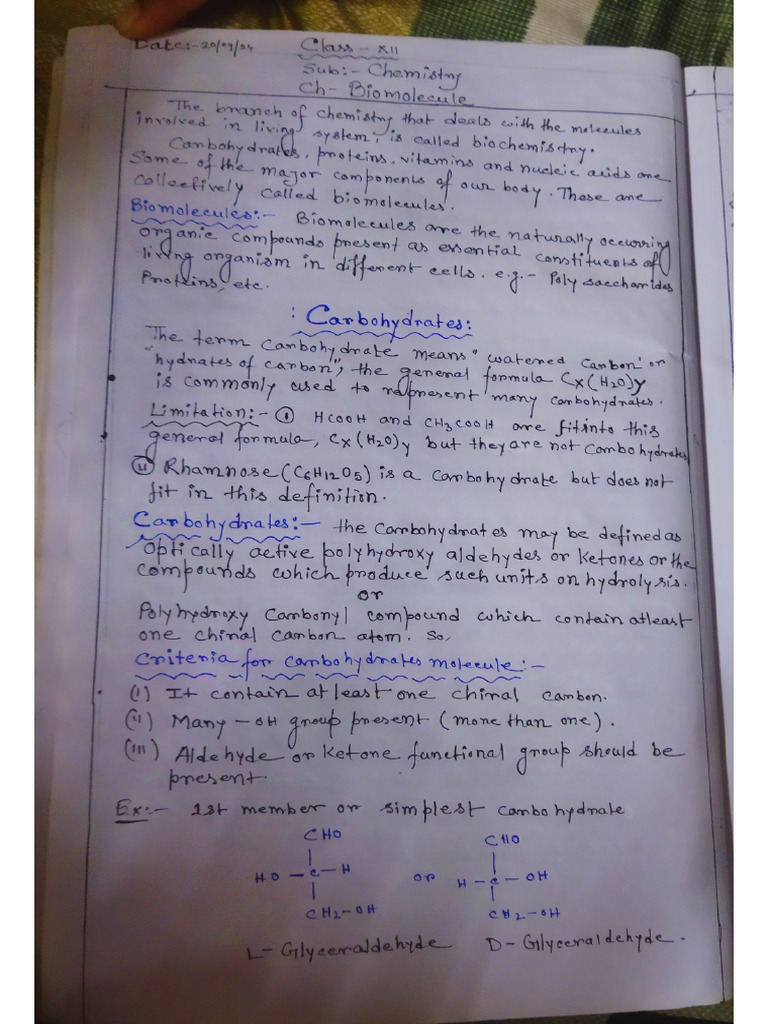 Date:- 20/09/24 Class - XII
Sub:- Chemistry
Ch- Biomolecule
The branch of chemistry that deals with the molecules
involved in living system, is called biochemistry.
Carbohydrates, proteins, vitamins and nucleic acids are
Some of the major components of our body. These are
collectively called biomolecules.
Biomolecules:- Biomolecules are the naturally occurring
organic compounds present as essential constituents of
living organism in different cells. e.g:- Poly saccharides
Proteins, etc.
: Carbohydrates:
The term Carbohydrate means "watered Carbon' or
"hydrates of carbon", the general formula Cx(H2O)y
is commonly used to represent many carbohydrates.
Limitation:- (i) HCOOH and CH3COOH are fit into this
general formula, Cx(H2O)y but they are not Carbohydrates
(ii) Rhamnose (C6H12O5) is a carbohydrate but does not
fit in this definition.
Carbohydrates:- the Carbohydrates may be defined as
Optically active polyhydroxy aldehydes or Ketones or the
compounds which produce such units on hydrolysis.
or
Polyhydroxy Carbonyl compound which contain atleast
one chiral Carbon atom. So,
Criteria for carbohydrates molecule:-
(i) It contain at least one chiral carbon.
(ii) Many -OH group present (more than one).
(iii) Aldehyde or Ketone functional group should be
present.
Ex:- 1st member or simplest carbohydrate
CHO CHO
HO - C - H or H - C - OH
CH2-OH CH2-OH
L- Glyceraldehyde D- Glyceraldehyde.